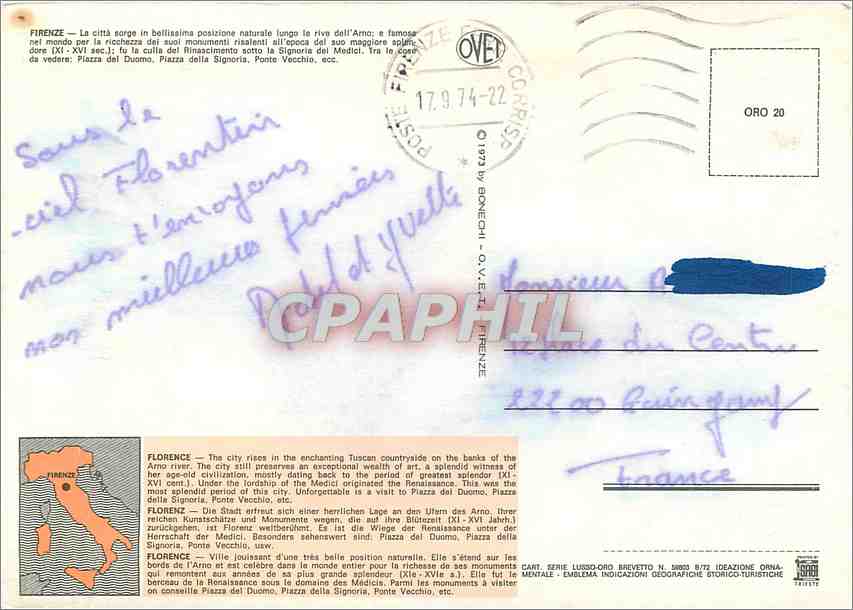 FIRENZE — La città sorge in bellissima posizione naturale lungo le rive dell'Arno; e famosa
nel mondo per la ricchezza dei suoi monumenti risalenti all'epoca del suo maggiore splen-
dore (XI - XVI sec.); fu la culla del Rinascimento sotto la Signoria dei Medici. Tra le cose
da vedere: Piazza del Duomo, Piazza della Signoria, Ponte Vecchio, ecc.
POSTE FIRENZE CORRISP
OVET
17.9.74-22
*
ORO 20
Sous le
ciel Florentin
nous t'envoyons
nos meilleures pensées
et Yvette
© 1973 by BONECHI - O.V.E.T. FIRENZE
CPAPHIL
Monsieur
place du Centre
22200 Guingamp
France
FIRENZE
FLORENCE — The city rises in the enchanting Tuscan countryside on the banks of the
Arno river. The city still preserves an exceptional wealth of art, a splendid witness of
her age-old civilization, mostly dating back to the period of greatest splendor (XI -
XVI cent.). Under the lordship of the Medici originated the Renaissance. This was the
most splendid period of this city. Unforgettable is a visit to Piazza del Duomo, Piazza
della Signoria, Ponte Vecchio, etc.
FLORENZ — Die Stadt erfreut sich einer herrlichen Lage an den Ufern des Arno. Ihrer
reichen Kunstschätze und Monumente wegen, die auf ihre Blütezeit (XI - XVI Jahrh.)
zurückgehen, ist Florenz weltberühmt. Es ist die Wiege der Renaissance unter der
Herrschaft der Medici. Besonders sehenswert sind: Piazza del Duomo, Piazza della
Signoria, Ponte Vecchio, usw.
FLORENCE — Ville jouissant d'une très belle position naturelle. Elle s'étend sur les
bords de l'Arno et est celèbre dans le monde entier pour la richesse de ses monuments
qui remontent aux années de sa plus grande splendeur (XIe - XVIe s.). Elle fut le
berceau de la Renaissance sous le domaine des Médicis. Parmi les monuments à visiter
on conseille Piazza del Duomo, Piazza della Signoria, Ponte Vecchio, etc.
CART. SERIE LUSSO-ORO BREVETTO N. 59803 B/72 IDEAZIONE ORNA-
MENTALE - EMBLEMA INDICAZIONI GEOGRAFICHE STORICO-TURISTICHE
PRINTED BY
TRIESTE